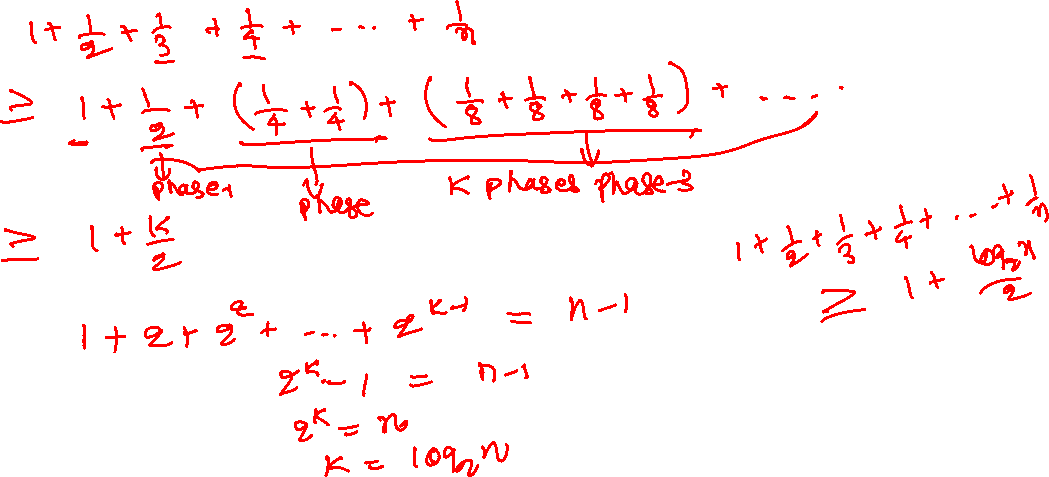 1 + 1/2 + 1/3 + 1/4 + ... + 1/n
≥ 1 + 1/2 + (1/4 + 1/4) + (1/8 + 1/8 + 1/8 + 1/8) + ....
phase1 phase K phases phase-3
≥ 1 + K/2
1 + 2 + 2^2 + ... + 2^(K-1) = n-1
2^K - 1 = n-1
2^K = n
K = log_2 n
1 + 1/2 + 1/3 + 1/4 + ... + 1/n
≥ 1 + log_2 n / 2